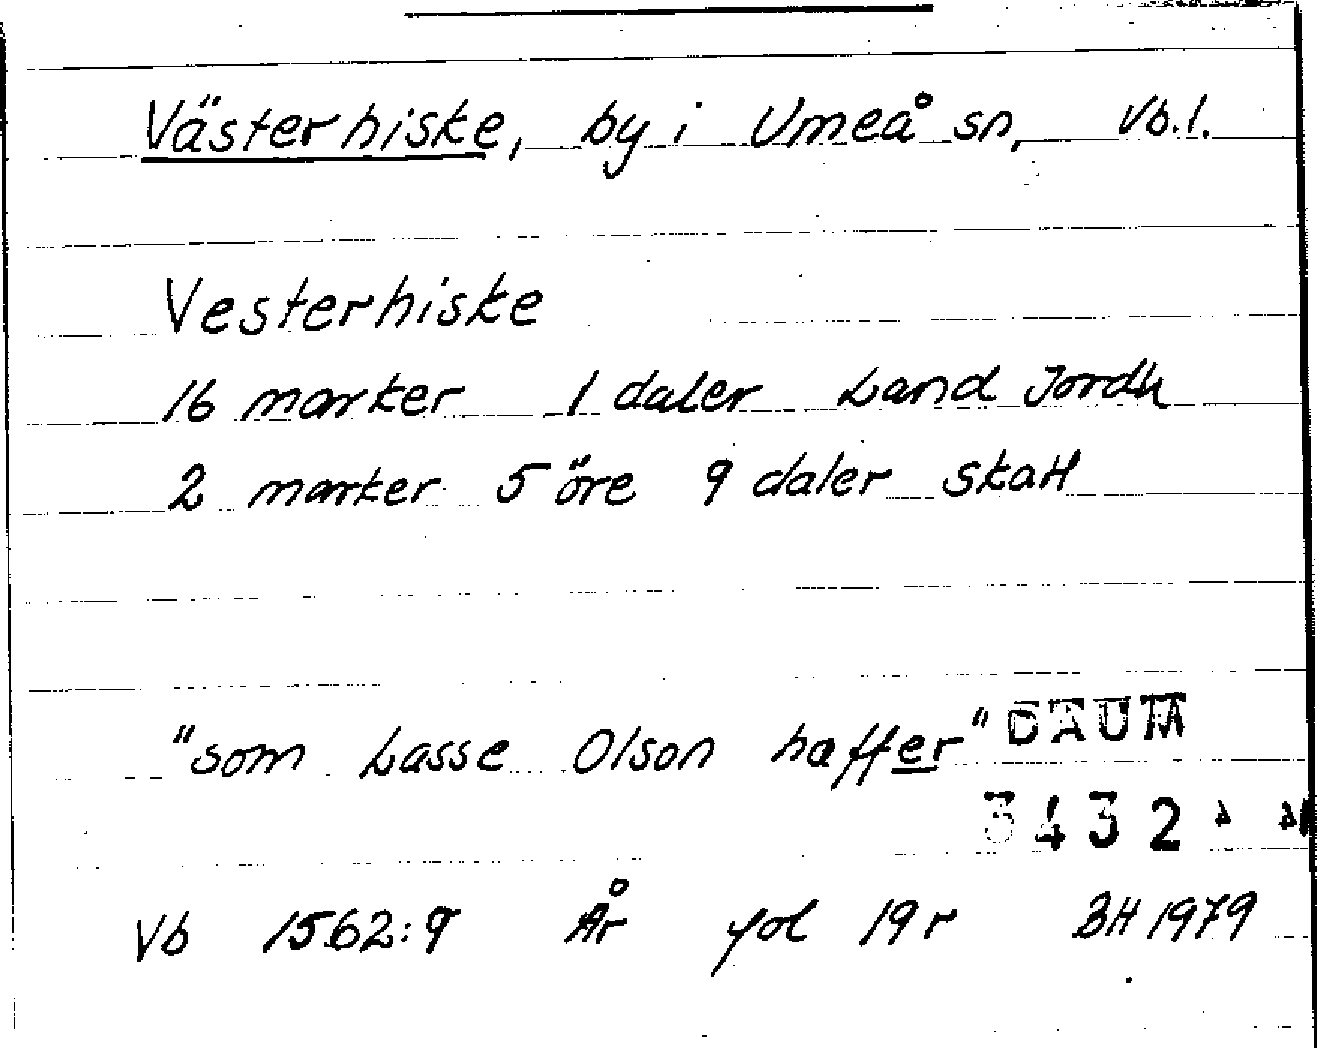 Västerhiske, by i Umeå sn, Vb.l.
Vesterhiske
16 marker 1 daler Land Jordh
2 marker 5 öre 9 daler skatt
"som Lasse Olson haffer" DAUM
3432
Vb 1562:9 År fol 19 r BH 1979